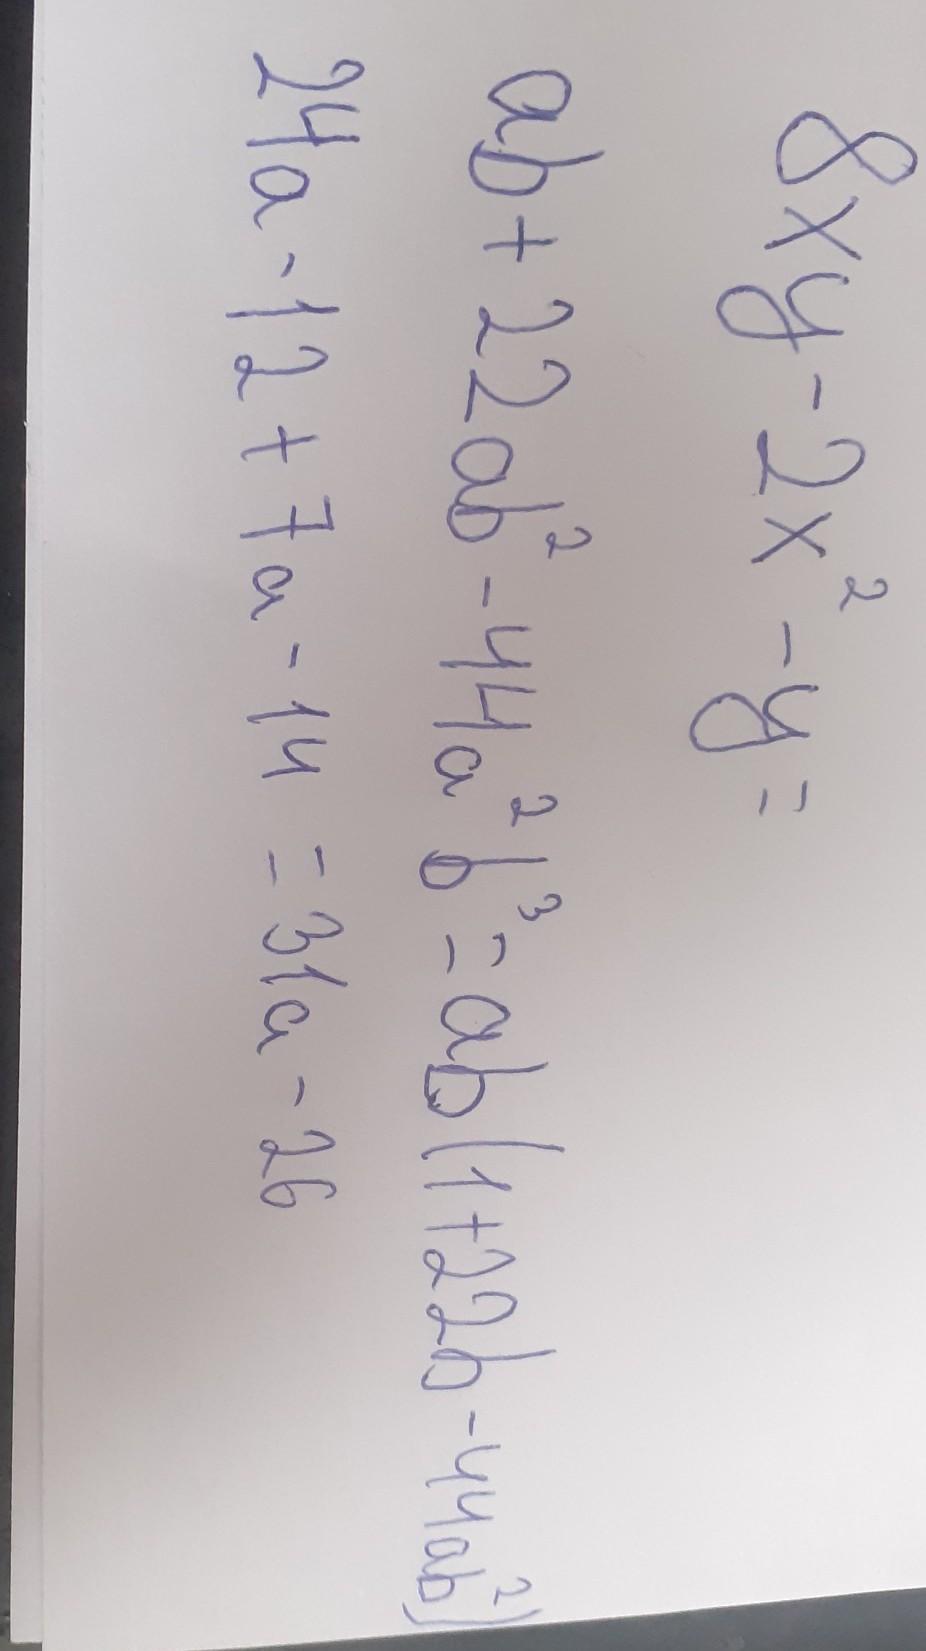 8xy - 2x² - y =
ab + 22ab² - 44a²b³ = ab(1 + 22b - 44ab²)
24a - 12 + 7a - 14 = 31a - 26